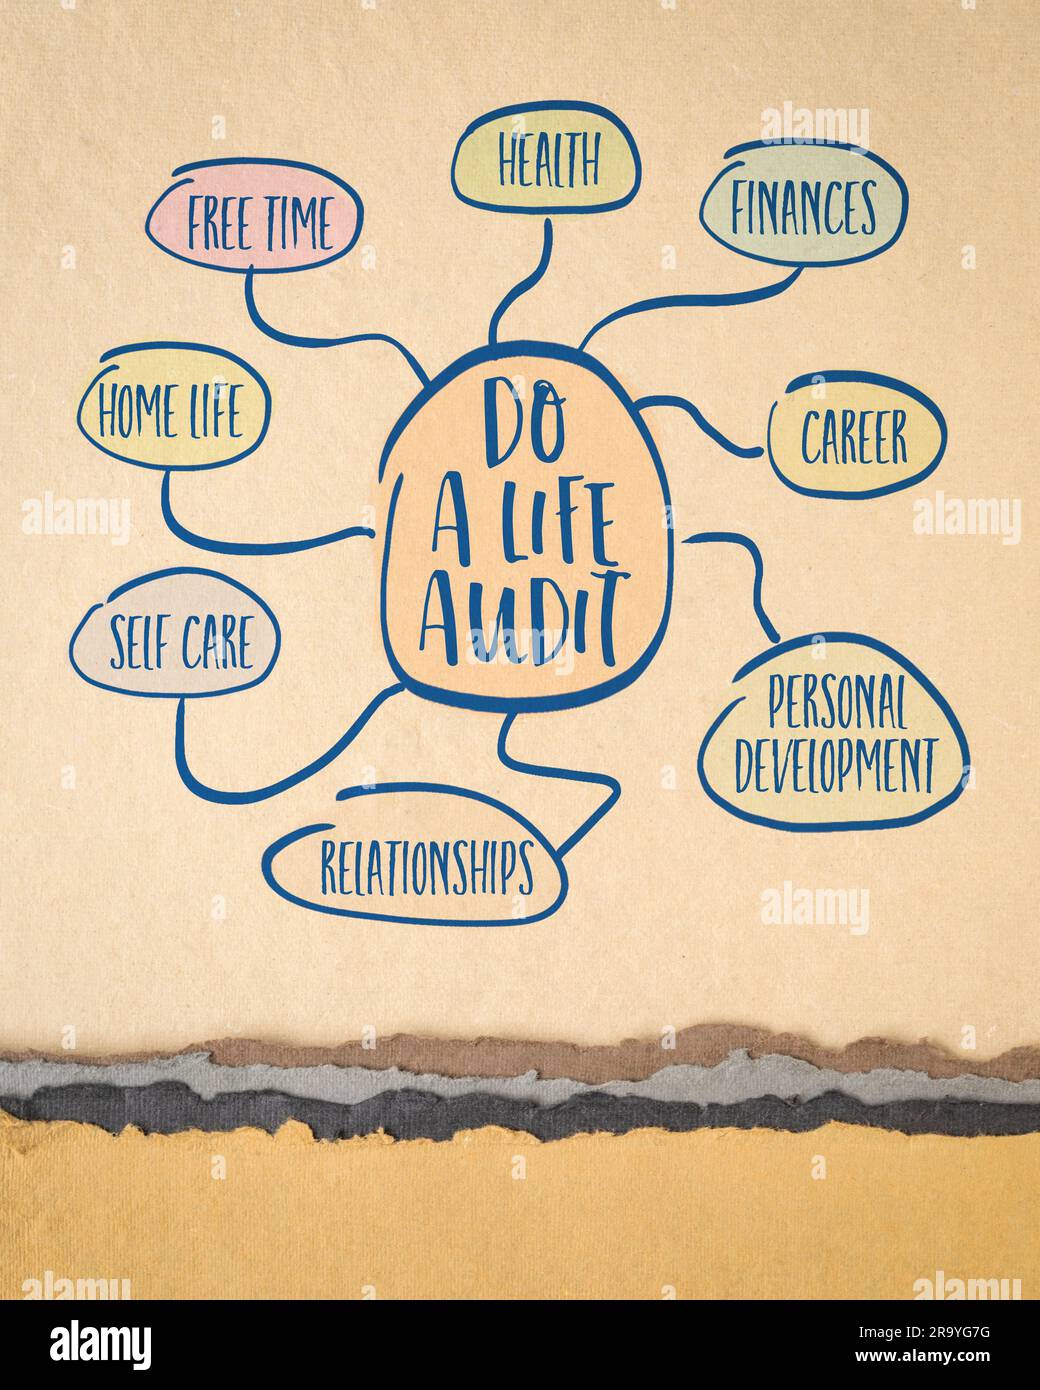 HEALTH
FREE TIME
FINANCES
HOME LIFE
CAREER
DO
A LIFE
AUDIT
SELF CARE
PERSONAL
DEVELOPMENT
RELATIONSHIPS
alamy
alamy
alamy
alamy
alamy
alamy
alamy
alamy
alamy
a
a
a
a
a
a
a
a
alamy
Image ID: 2R9YG7G
www.alamy.com